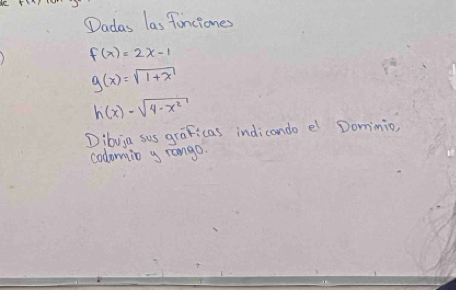 Dadas las Funciones
f(x) = 2x - 1
g(x) = √1+x
h(x) = √4-x²
Dibuja sus gráficas indicando el Dominio,
codominio y rango.